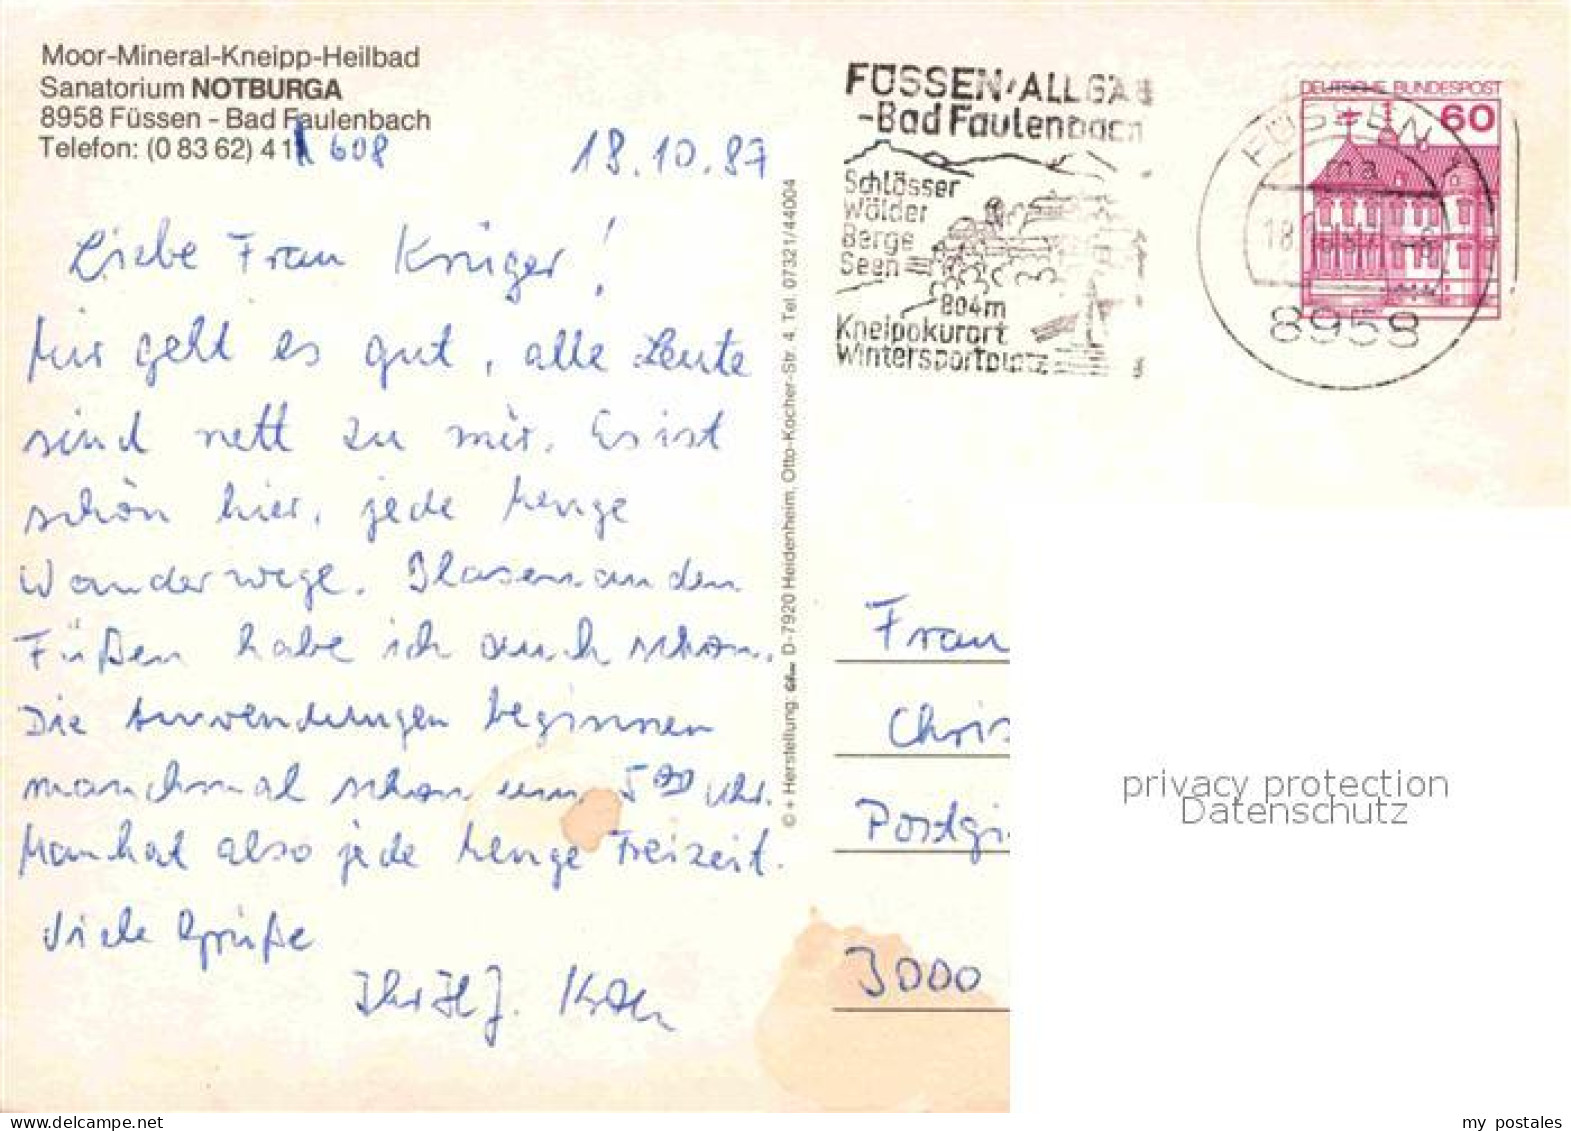 Moor-Mineral-Kneipp-Heilbad
Sanatorium NOTBURGA
8958 Füssen - Bad Faulenbach
Telefon: (0 83 62) 41 608
18.10.87
Liebe Frau Krüger!
Mir geht es gut, alle Leute
sind nett zu mir. Es ist
schön hier, jede Menge
Wanderwege. Blasen an den
Füßen habe ich auch schon.
Die Anwendungen beginnen
manchmal schon um 5 00 Uhr.
Man hat also jede Menge Freizeit.
Viele Grüße
Ihr H J.
© + Herstellung: D-7920 Heidenheim, Otto-Kocher-Str. 4, Tel. 07321/44004
FÜSSEN/ALLGÄU
-Bad Faulenbach
Schlösser
Wälder
Berge
Seen
804m
Kneippkurort
Wintersportplatz
DEUTSCHE BUNDESPOST
60
FÜSSEN
ma
18
8958
Frau
Chris
Postgi
3000
privacy protection
Datenschutz
my postales